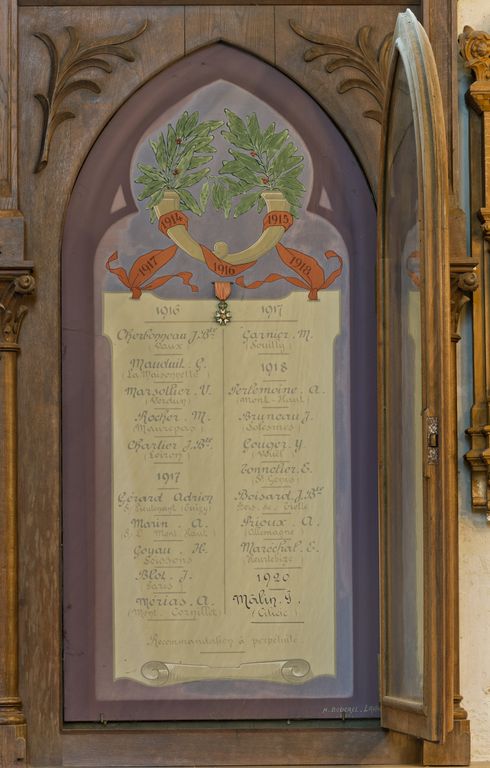 1914
1915
1917
1916
1918
1916
Cherbonneau J.Bte
(Vaux)
Mauduit. G.
(La Maisonnette)
Marsollier. V.
(Verdun)
Rocher. M.
(Maurepas)
Chartier J.Bte
(Leiron)
1917
Gérard Adrien
S. Lieutenant
Marin . A.
Mont Haut)
Goyau . H.
Soissons
Blot. J.
(Paris)
Mérias. A.
(Mont. Cornillet)
1917
Garnier. M.
(Souilly)
1918
Perlemoine. A.
(Mont-Haut)
Bruneau J.
(Solesmes)
Gouger. Y.
Tonnelier. E.
Boisard. J.Bte
Prioux . A.
(Allemagne)
Marechal. E.
Heurtebize
1920
Malin. J.
Recommandation à perpétuité